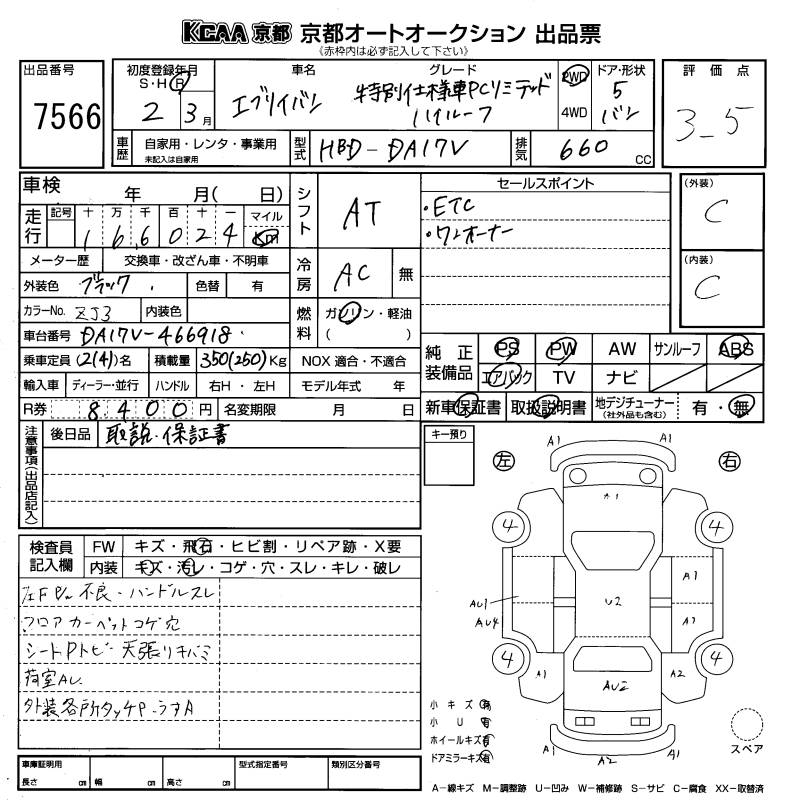 KCAA 京都 京都オートオークション 出品票
《赤枠内は必ず記入して下さい》
出品番号 7566
初度登録年月 S・H・R 2 3月
車名 エブリイバン
グレード 特別仕様車PCリミテッド ハイルーフ
2WD 4WD
ドア・形状 5 バン
評価点 3-5
車歴 自家用・レンタ・事業用 未記入は自家用
型式 HBD-DA17V
排気 660 CC
車検 年 月( 日)
シフト AT
セールスポイント
・ETC
・ワンオーナー
(外装) C
(内装) C
走行 記号 十 万 千 百 十 一 マイル
1 6 6 0 2 4 Km
メーター歴 交換車・改ざん車・不明車
冷房 AC 無
外装色 ブラック 色替 有
カラーNo. ZJ3 内装色
燃料 ガソリン・軽油 ( )
車台番号 DA17V-466918
乗車定員 2(4)名 積載量 350(250)Kg NOX 適合・不適合
輸入車 ディーラー・並行 ハンドル 右H・左H モデル年式 年
R券 8,400円 名変期限 月 日
純正装備品 PS PW AW サンルーフ ABS
エアバック TV ナビ
新車保証書 取扱説明書 地デジチューナー (社外品も含む) 有・無
注意事項(出品店記入) 後日品 取説・保証書
キー預り
左 右
A1 A1
A1
4 4
A1
AU1 U2
AU4 A1
4 4
A1 A2
AU2
A1 A1
A2
検査員記入欄 FW キズ・飛石・ヒビ割・リペア跡・X要
内装 キズ・汚レ・コゲ・穴・スレ・キレ・破レ
左F P/w 不良・ハンドルスレ
フロアカーペットコゲ穴
シートPトビ 天張りキバミ
荷室AU
外装各所タッチP うすA
小キズ 有
小U 有
ホイールキズ 有
ドアミラーキズ 有
スペア
車庫証明用 長さ cm 幅 cm 高さ cm 型式指定番号 類別区分番号
A-線キズ M-調整跡 U-凹み W-補修跡 S-サビ C-腐食 XX-取替済